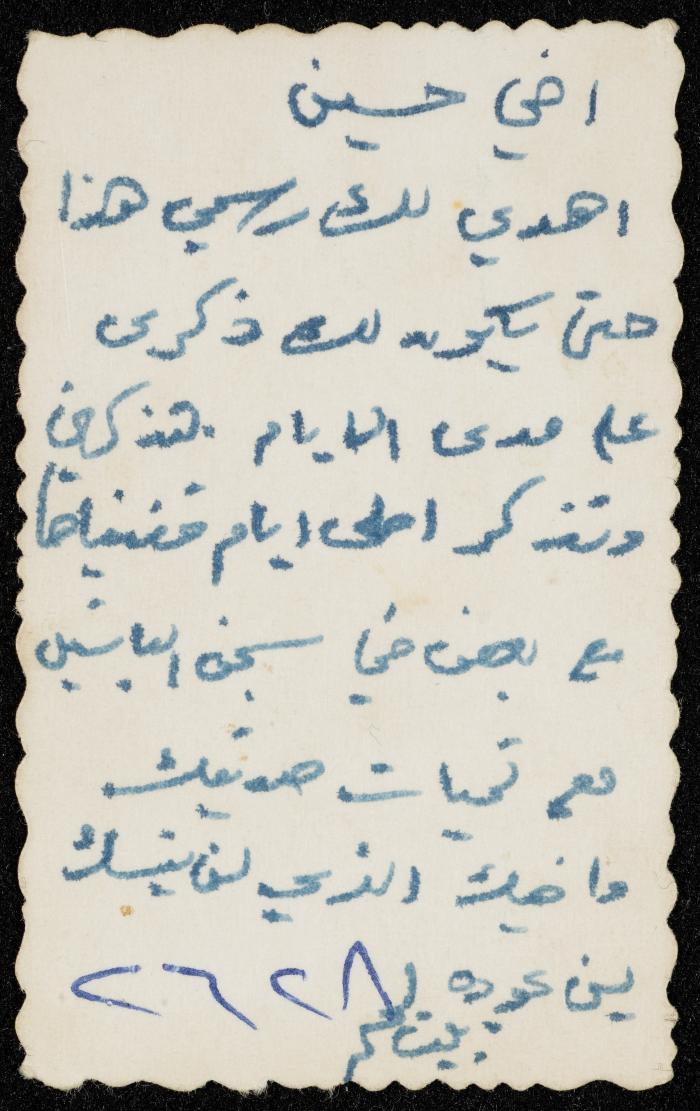 اخي حسين
اهدي لك رسمي هذا
حتى يكون لك ذكرى
على مدى الايام تتذكرني
وتتذكر احلى ايام قضيناها
مع بعض في سجن الباستيل
مع تحيات صديقك
واخيك الذي لن ينسك
عوده
٢٦٢٨